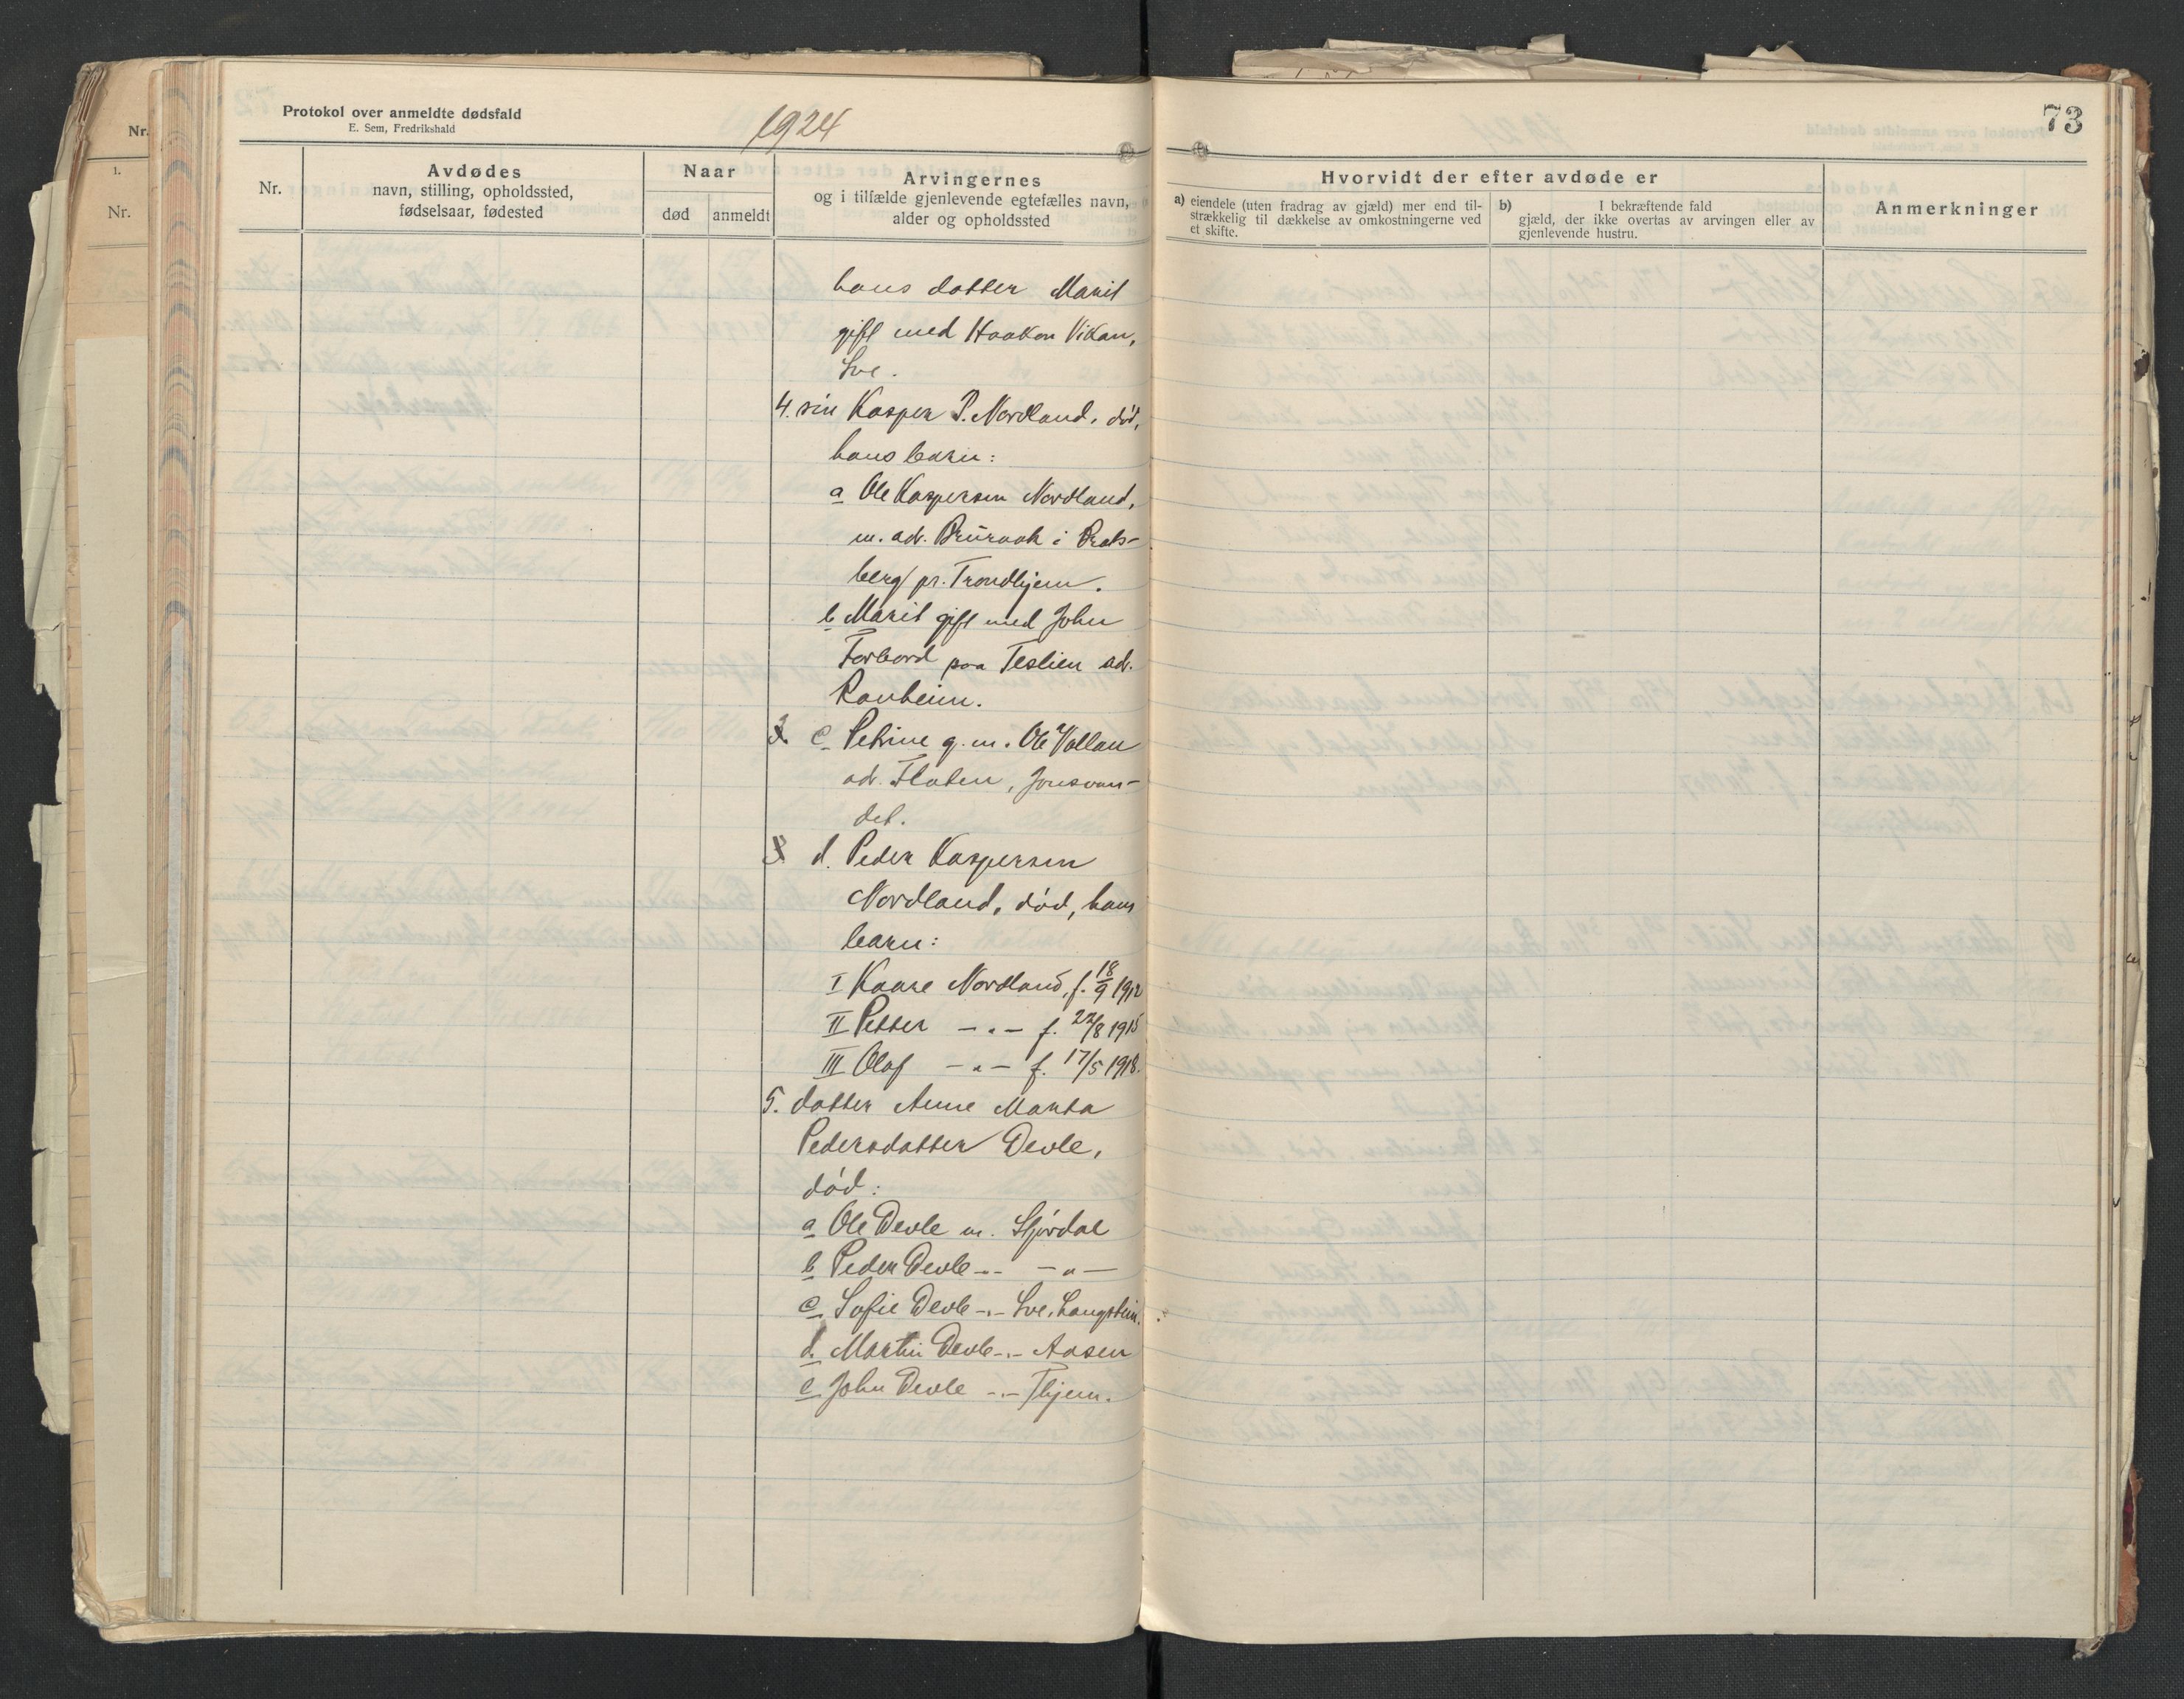 Protokol over anmeldte dødsfald
E. Sem, Fredrikshald
1924
Nr.
Avdødes
navn, stilling, opholdssted,
fødselsaar, fødested
Naar
død
anmeldt
Arvingernes
og i tilfælde gjenlevende egtefælles navn,
alder og opholdssted
hans datter Marit
gift med Haakon Vikan,
4. søn Kasper P. Nordland, død,
hans barn:
a Ole Kaspersen Nordland,
m. adr. Bruraok i Brats-
berg pr. Trondhjem.
b Marit gift med John
Forbord paa Teslien adr.
Ranheim.
c. Petrine g. m. Ole Vollan
adr. Floten, Jonsvan-
det.
d. Peder Kaspersen
Nordland, død, hans
barn:
I Kaare Nordland, f. 18/9 1912
II Petter -"- f. 22/8 1915
III Olaf -"- f. 17/5 1918.
5. datter Anne Marta
Pedersdatter Devle,
død:
a Ole Devle m. Stjørdal
b Peder Devle -"- -"-
c. Sofie Devle -"- Langstein.
d. Martin Devle -"- Aasen
e. John Devle -"- Thjem.
73
Hvorvidt der efter avdøde er
a) eiendele (uten fradrag av gjæld) mer end til-
strækkelig til dækkelse av omkostningerne ved
et skifte.
b) I bekræftende fald
gjæld, der ikke overtas av arvingen eller av
gjenlevende hustru.
Anmerkninger
Nr.
1.
Nr.